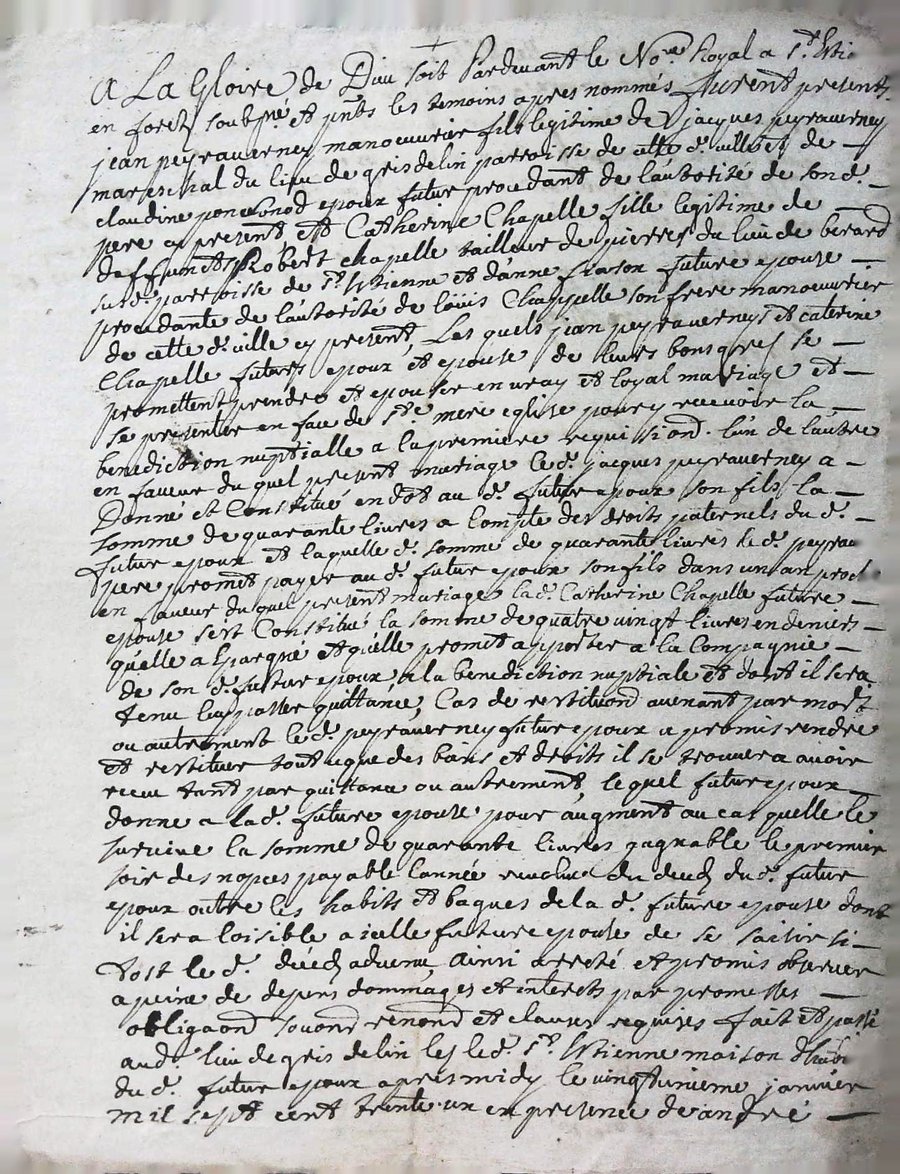 A La Gloire de Dieu soit Pardevant le Nore Royal a St. Etie
en forez soubsné. et pnts les temoins apres nommés furent presents
jean peyraverney manoeuvrier fils legitime de jacques peyraverney
mareschal du lieu de grisdelin parroisse de cette d. ville et de —
claudine poncebnod epoux futur procedant de l'autorité de sond. —
pere cy present et Catherine Chapelle fille legitime de —
deffunct Robert chapelle tailleur de pierres du lieu de berard
surd. parroisse de St. Etienne et d'anne future epouse —
procedante de l'autorité de loüis Chappelle son frere manoeuvrier
de cette d. ville cy present, Les quels jean peyraverney et caterine
Chapelle futurs epoux et epouse de leurs bons gres se —
promettent prendre et epouser en vray et loyal mariage et —
se presenter en face de Ste. mere eglise pour y recevoir la —
benediction nuptialle a la premiere requissiond. l'un de l'autre
en faveur du quel present mariage le d. jacques peyraverney a —
Donné et Constitué en dot au d. futur epoux son fils la —
somme de quarante livres a compte des droits paternels du d. —
futur epoux et laquelle d. somme de quarante livres le d. peyrau
pere promet payer au d. futur epoux son fils dans un an proch
en faveur du quel present mariage lad. Catherine Chapelle future —
epouse s'est Constitué la somme de quatre vingt livres en deniers —
qu'elle a Epargné et qu'elle promet apporter a la Compagnie —
de son d. futur epoux a la benediction nuptiale et dont il sera
tenu luy passer quittance, Cas de restituond avenant par mort
ou autrement le d. peyraverney futur epoux a promis rendre
et restituer tout ce que des biens et droits il se trouvera avoir
receu tant par quittance ou autrement, lequel futur epoux —
donne a lad. future epouse pour augment au cas quelle le
survive la somme de quarante livres gagnable le premier
soir des nopces payable l'année revolue du deced du d. futur
epoux outre les habits et bagues de la d. future epouse dont
il sera loisible a icelle future epouse de se saisir si —
tost le d. deced advenu, Ainsi arreté et promis observer
a peine de depens dommages et interets par promesses —
obligaond souond renond et clauses requises fait et passé
aud. lieu de gris delin les led. St. Etienne maison d'habi
du d. futur epoux apres midy le vingt unieme janvier
mil sept cent trente un en presence de andré —